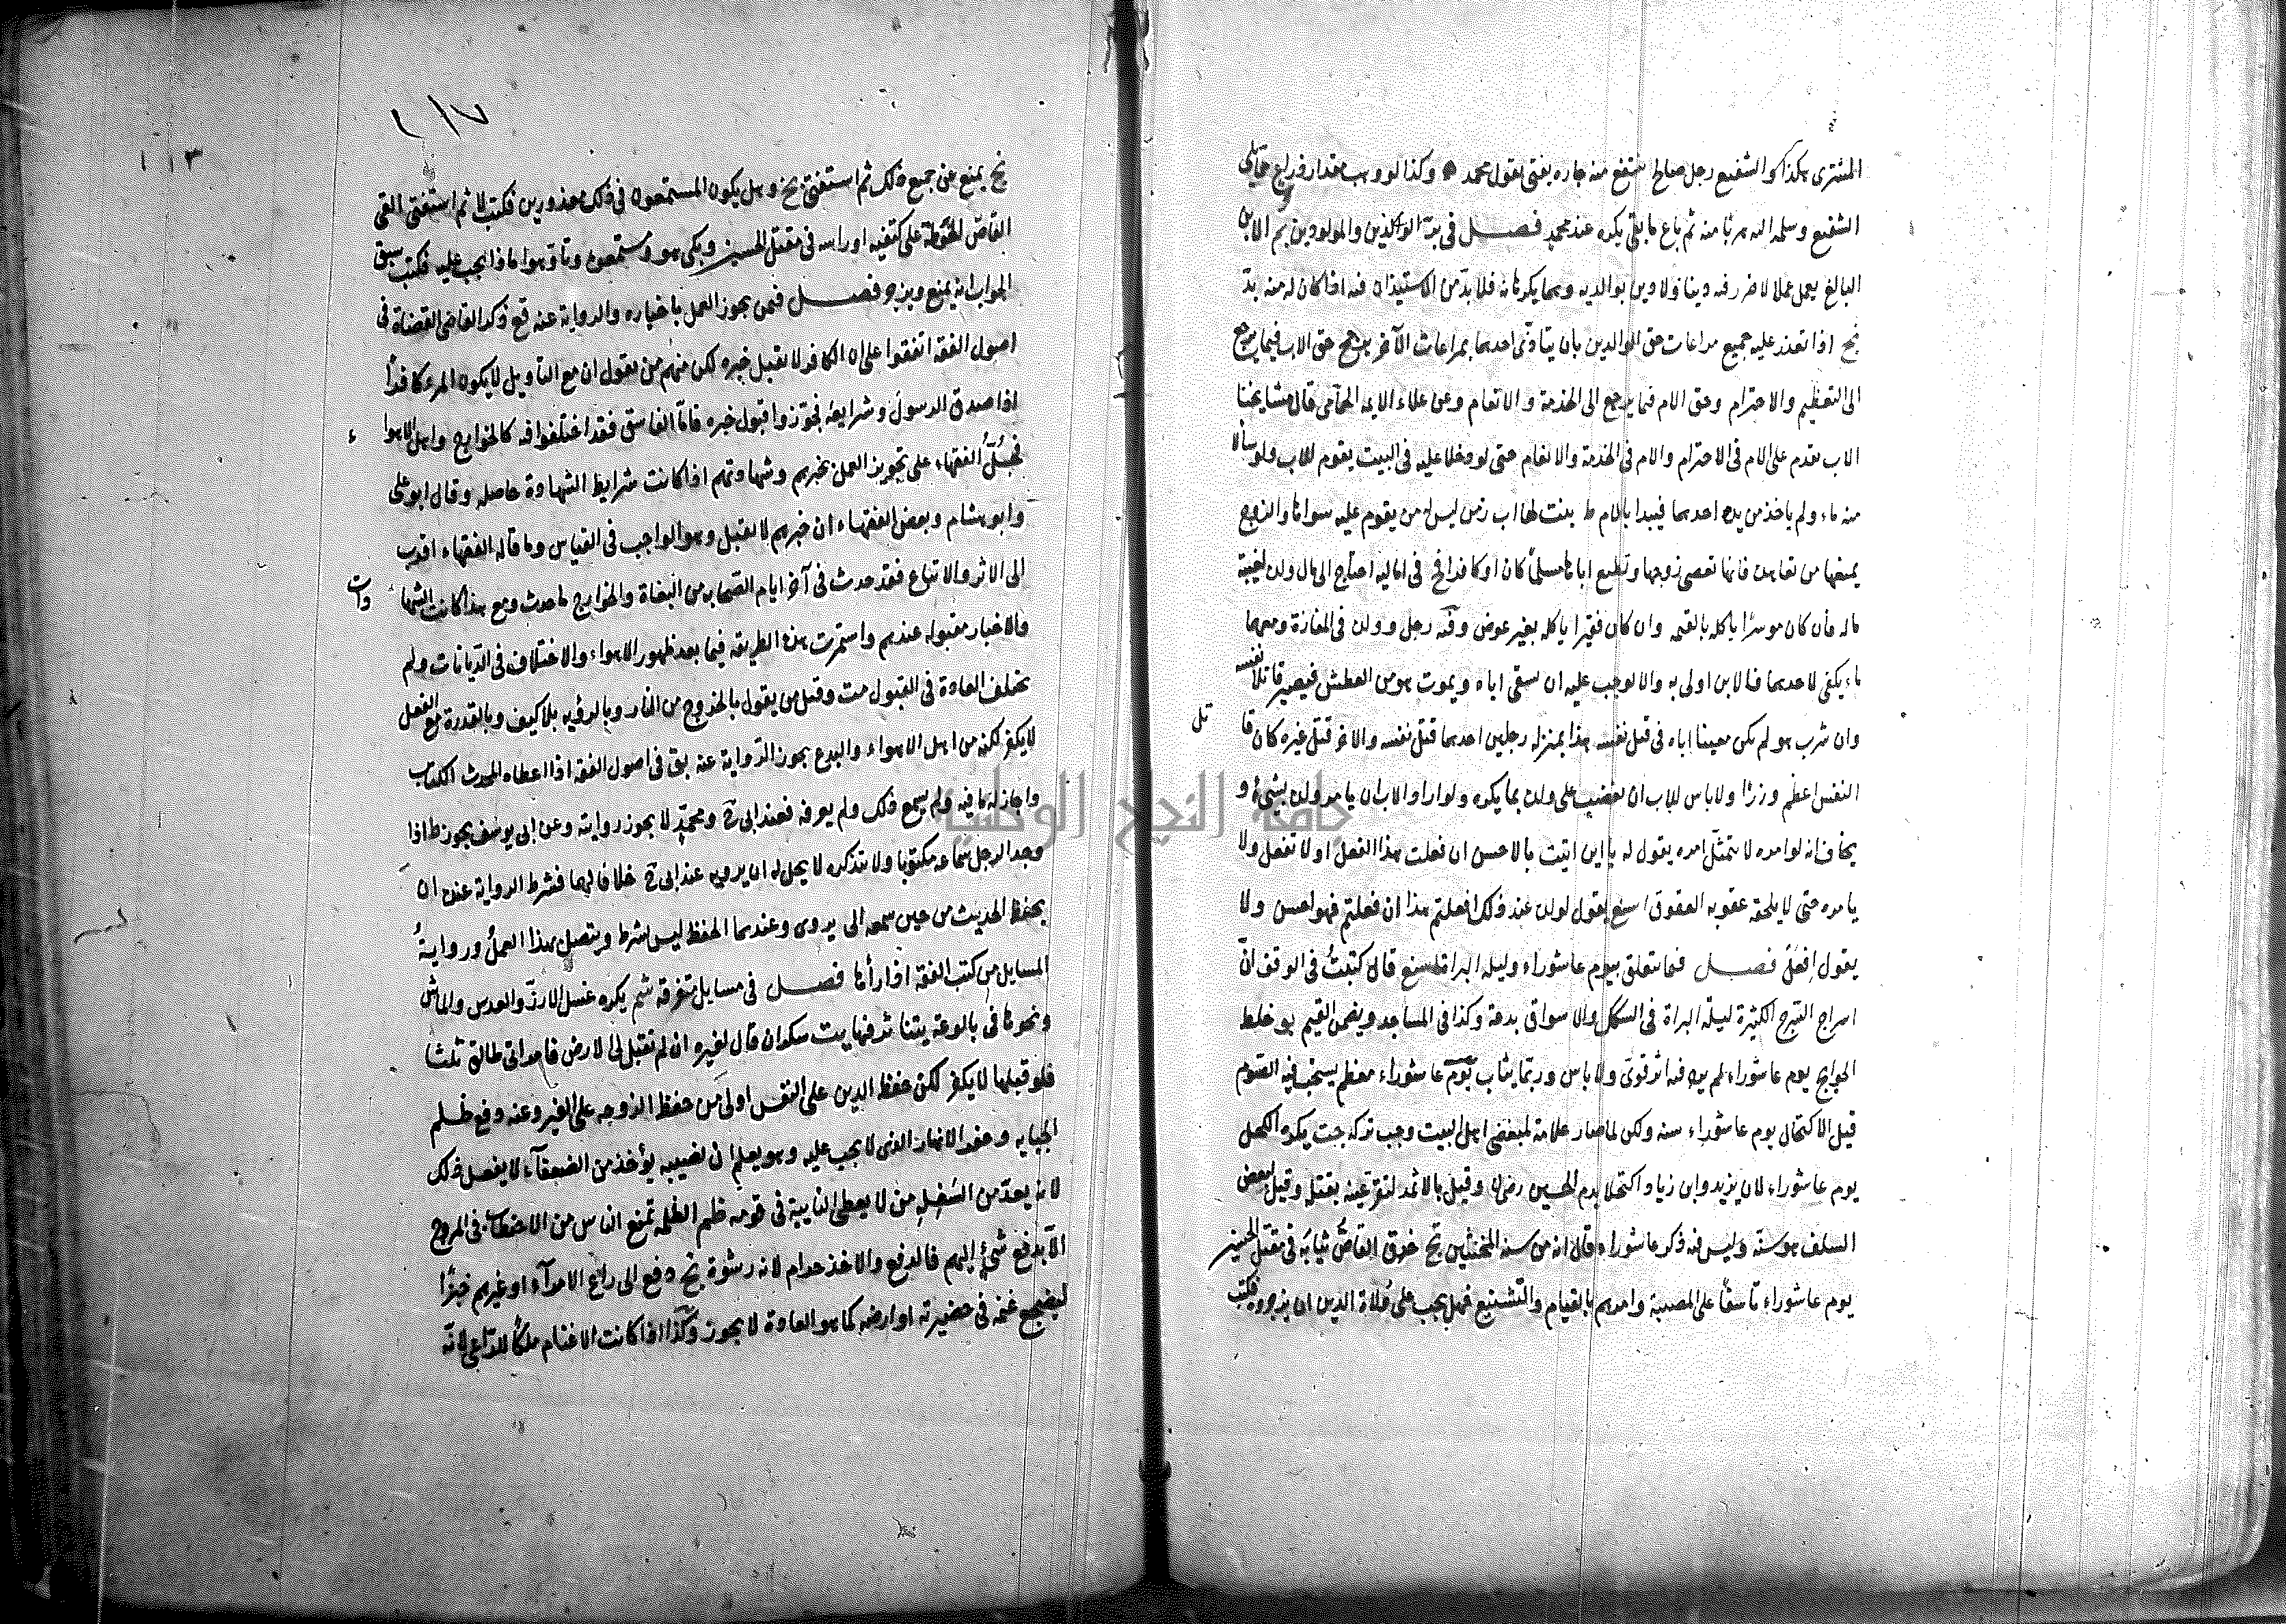 المشترى هكذا والشفيع رجل صالح ينتفع منه جاره يفتى بقول محمد وكذا لو وهب مقدار ذراع مما يلى
الشفيع وسلمه اليه هربا منه ثم باع ما بقى يكره عند محمد فصل فى بر الوالدين والمولودين الابن
البالغ يعمل عملا لا ضرر فيه دينا ولا دين بوالديه وهما يكرهانه فلا بد من الاستيذان فيه اذا كان له منه بد
نج اذا تعذر عليه جميع مراعات حق الوالدين بان يتأذى احدهما بمراعات الآخر يرجح حق الاب فيما يرجع
الى التعظيم والاحترام وحق الام فيما يرجع الى الخدمة والانعام وعن علاء الايمه الحمامى قال مشايخنا
الاب يقدم على الام فى الاحترام والام فى الخدمة والانعام حتى لو دخلا عليه فى البيت يقوم للاب ولو سألا
منه ماء ولم ياخذ من يده احدهما فيبدا بالام ط بنت لها اب زمن ليس له من يقوم عليه سواها والزوج
يمنعها من تعاهده فانها تعصى زوجها وتطيع اباها مسلما كان او كافرا فى اماليه احتاج الى مال ولده لغيبة
ماله فان كان موسرا ياكله بالقيمه وان كان فقيرا ياكله بغير عوض وفيه رجل وولده فى المفازة ومعهما
ماء يكفى لاحدهما فالابن اولى به والا لوجب عليه ان يسقى اباه ويموت هو من العطش فيصير قاتلا نفسه
وان شرب هو لم يكن معينا اباه فى قتل نفسه هذا بمنزله رجلين احدهما قتل نفسه والاخر قتل غيره كان قا تل
النفس اعظم وزرا ولا باس للاب ان يغضب على ولده بما يكره ولو اراد الاب ان يامر ولده بشئ و
يخاف انه لو امره لا يتمثل امره يقول له يا ابن اتيت بالاحسن ان فعلت هذا الفعل او لا تفعل ولا
يامره حتى لا يلحقه عقوبه العقوق يقول لولده عند ذلك افعلتم هذا ان فعلتم فهو احسن ولا
يقول افعل فصل فيما يتعلق بيوم عاشوراء وليله البراة قال كتبت فى الوقف ان
اسراج السرج الكثيرة ليلة البراة فى السكك والاسواق بدعة وكذا فى المساجد ويضمن القيم بو خلط
الحوايج يوم عاشوراء لم يرد فيه اثر قوى ولا باس وربما يثاب يوم عاشوراء معظم يستحب فيه الصوم
قيل الاكتحال يوم عاشوراء سنه ولكن لما صار علامة لمبغضى اهل البيت وجب تركه جت يكره الكحل
يوم عاشوراء لان يزيد وابن زياد اكتحلا بدم الحسين رضى وقيل بالاثمد لتقر عينه بقتله وقيل لبعض
السلف هو سنة وليس فيه ذكر عاشوراء قال انه من سنه المخنثين نج خرق القاص ثيابه فى مقتل الحسين
يوم عاشوراء تاسفا على المصيبة وامرهم بالقيام والتشنيع فهل يجب على ولاة الدين ان يزجروه فكتب
نج يمنع عن جميع ذلك ثم استفتى نج وهل يكون المستمعون فى ذلك معذورين فكتب لا ثم استفتى القى
القاص الحوطة على كتفيه او راسه فى مقتل الحسين وبكى هو ومستمعوه وتاوهوا ماذا يجب عليه فكتب سبق
الجواب انه يمنع ويزجر فصل فيمن يجوز العمل باخباره والرواية عنه قع ذكر القاضى القضاة فى
اصول الفقه اتفقوا على ان الكافر لا يقبل خبره لكن منهم من يقول ان مع التأويل لا يكون المرء كافرا
اذا صدق الرسول وشرايعه فجوزوا قبول خبره فاما الفاسق فقد اختلفوا فيه كالخوارج واهل الاهوا ء
فجل الفقهاء على تجويز العمل بخبرهم وشهادتهم اذا كانت شرايط الشهادة حاصله وقال ابو على
وابو هشام وبعض الفقهاء ان خبرهم لا يقبل وهو الواجب فى القياس وما قاله الفقهاء اقرب
الى الاثر والاتباع فقد حدث فى آخر ايام الصحابه من البغاة والخوارج ما حدث ومع هذا كانت الشها دات
والاخبار مقبوله عندهم واستمرت هذه الطريقه فيما بعد ظهور الاهواء والاختلاف فى الديانات ولم
تختلف العادة فى القبول مت وقتل من يقول بالخروج من النار وبالرؤيه بلا كيف وبالقدرة مع الفعل
لا يكفر لكنه من اهل الاهواء والبدع يجوز الرواية عنه بق فى اصول الفقه اذا اعطاه المحدث الكتاب
واجاز له ما فيه ولم يسمع ذلك ولم يعرفه فعند ابى ح ومحمد لا يجوز روايته وعن ابى يوسف يجوز ط اذا
وجد الرجل سماعه مكتوبا ولا يتذكره لا يحل له ان يرويه عند ابى ح خلافا لهما فشرط الرواية عنده ان
يحفظ الحديث من حين سمعه الى يروى وعندهما الحفظ ليس بشرط ويتصل بهذا العمل ورواية
المسايل من كتب الفقه اذا رأها فصل فى مسايل متفرقه شم يكره غسل الارز والعدس والماش
ونحوها فى بالوعة يتناثر فيها بيت سكران قال لغيره ان لم تقبل لى الارض فامراتى طالق ثلثا
فلو قبلها لا يكفر لكن حفظ الدين على النفس اولى من حفظ الزوجه على الغير وعنه دفع ظلم
الجبايه وحفر الانهار الذى لا يجب عليه وهو يعلم ان نصيبه يؤخذ من الضعفاء لا يفعل ذلك
لانه يعد من السفل من لا يعطى النايبة فى قومه ظلم الظلمه تمنع الناس من الاحتطاب فى المروج
الا بدفع شئ اليهم فالدفع والاخذ حرام لانه رشوة نج دفع الى راع الامراء او غيرهم خبزا
ليضجع غنمه فى حضيرته او ارضه كما هو العادة لا يجوز وكذا اذا كانت الاغنام ملكا للراعى لانه
جامعة النجاح الوطنية